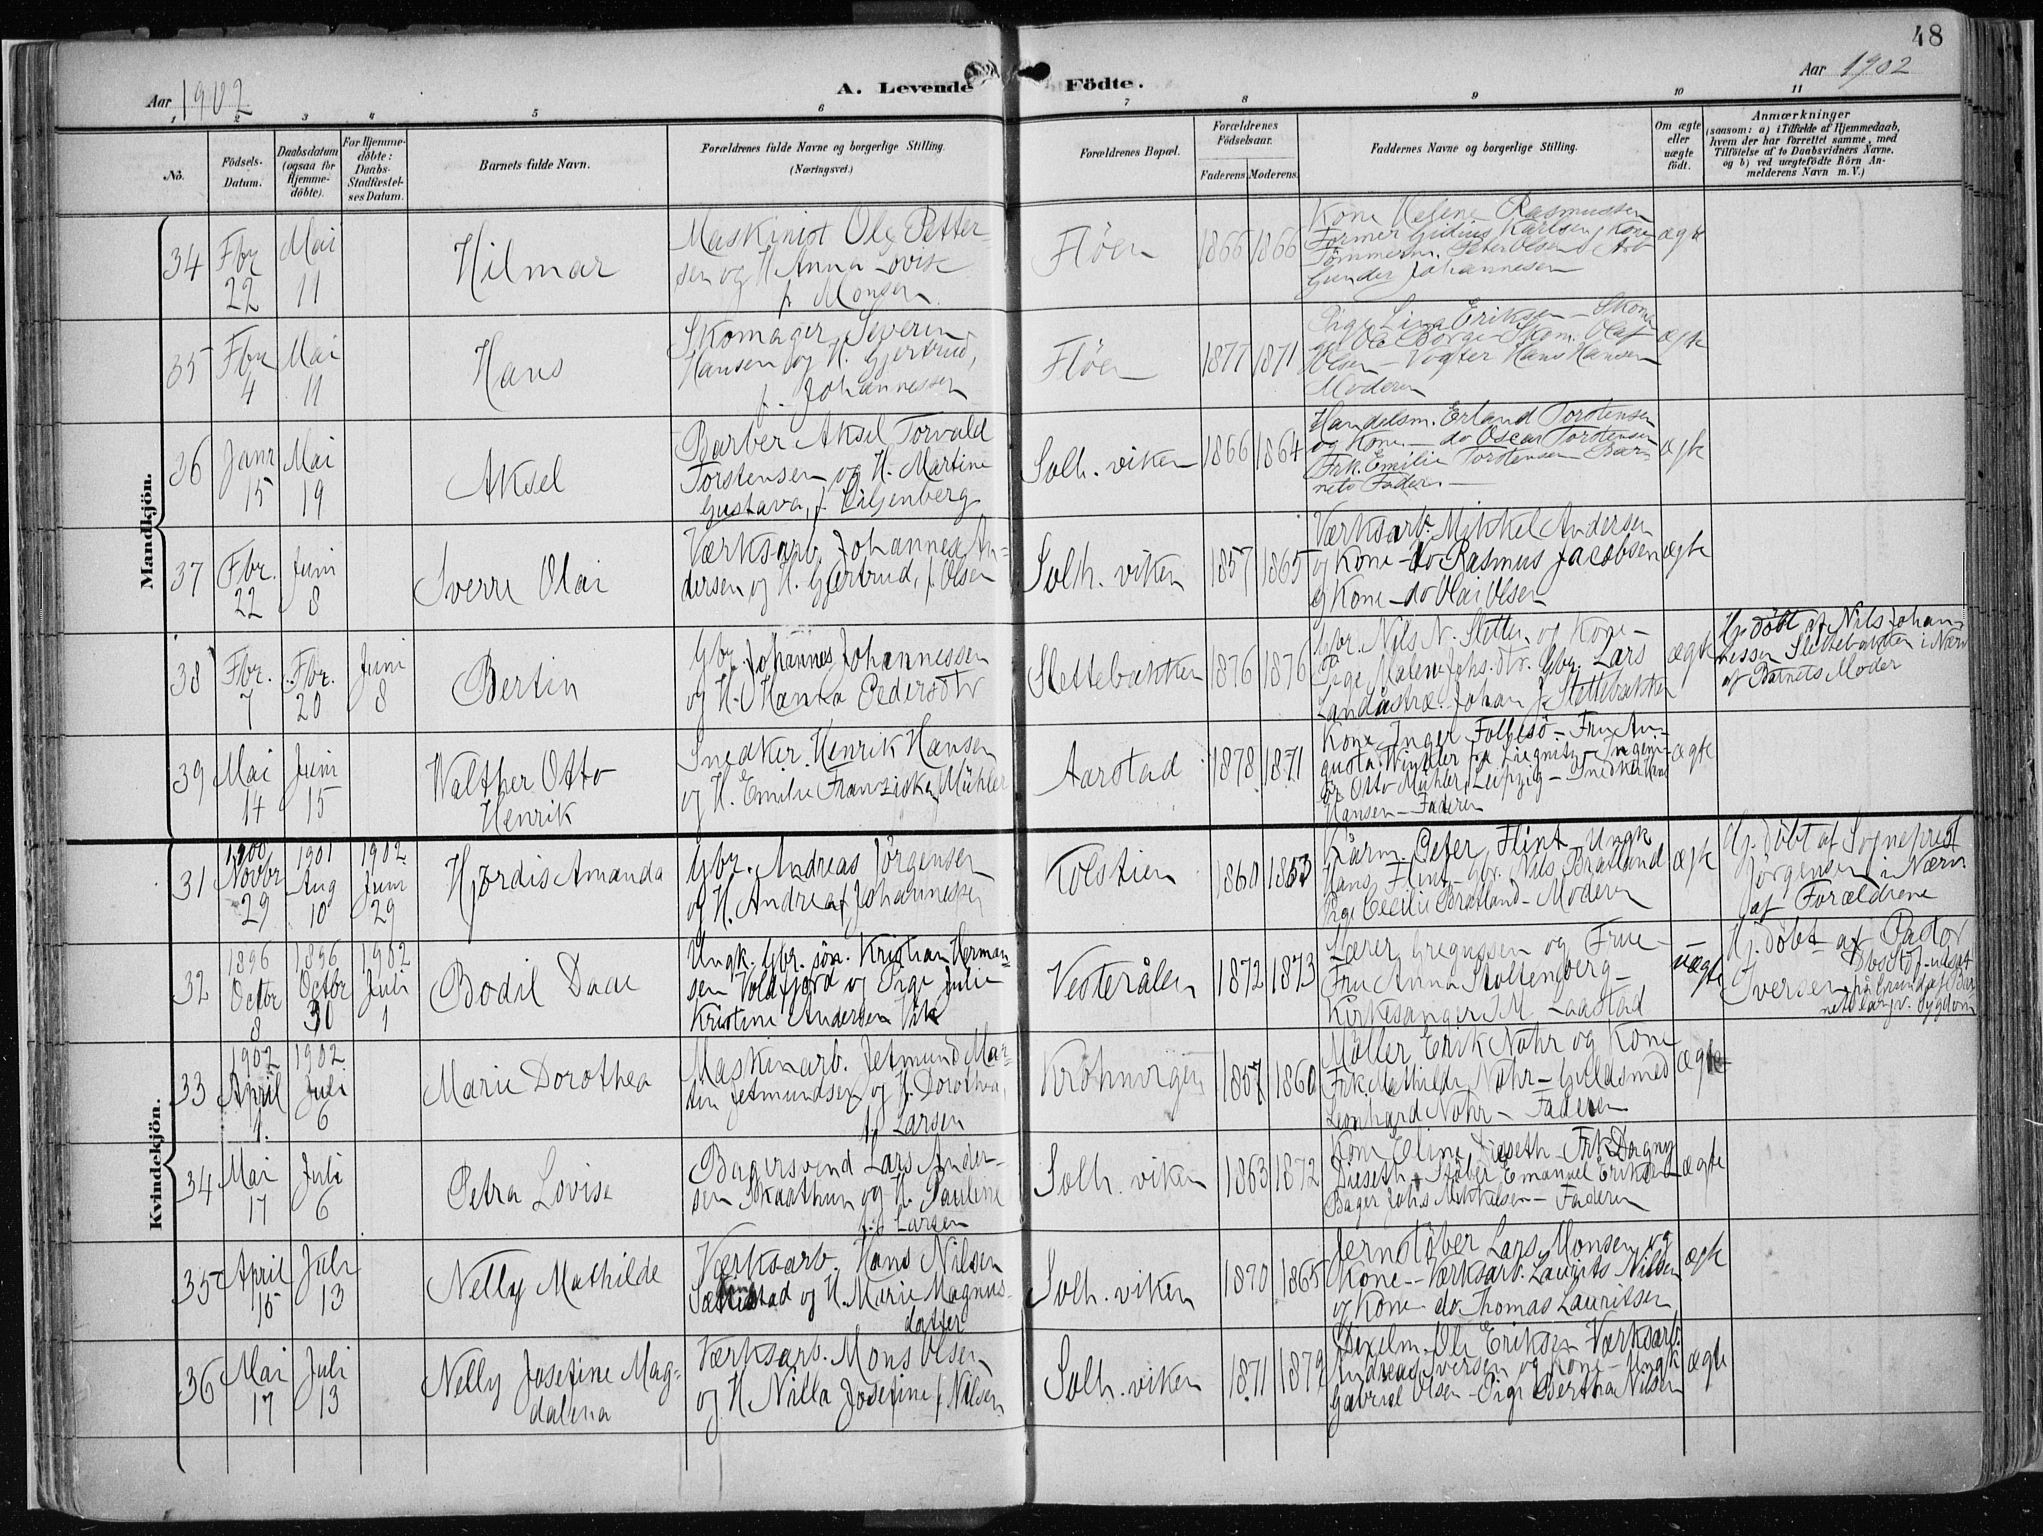 48
Aar 1902
A. Levende Födte.
Aar 1902
1 2 3 4 5 6 7 8 9 10 11
No.
Födsels-Datum.
Daabsdatum (ogsaa for Hjemme-døbte).
For Hjemme-døbte: Daabs-Stadfæstel-ses Datum.
Barnets fulde Navn.
Forældrenes fulde Navne og borgerlige Stilling.
(Næringsvei.)
Forældrenes Bopæl.
Forældrenes Födselsaar.
Faderens. Moderens.
Faddernes Navne og borgerlige Stilling.
Om ægte eller uægte født.
Anmærkninger
(saasom: a) i Tilfælde af Hjemmedaab,
hvem der har forrettet samme, med
Tilföielse af to Daabsvidners Navne,
og b) ved uægtefödte Börn An-
melderens Navn m. V.)
Mandkjön.
34 Fbr 22 Mai 11 Hilmar
Maskinist Ole Petter-
sen og H. Anna Lovise
f. Monsen
Fløen 1866 1866
Kone Helene Rasmussen
Former Gutius Karlsen, Kone
Tömmerm. Peter Olsen
Gunder Johannesen
ægte
35 Fbr 4 Mai 11 Hans
Skomager Severin
Hansen og H. Gjertrud,
f. Johannessen
Fløen 1877 1871
Pige Lina Eriksen - Skoma
ger Ole Borge - Skom. Olaf
Olsen - Vogter Hans Hansen
Moderen
ægte
36 Janr 15 Mai 19 Aksel
Barber Aksel Torvald
Torstensen og H. Martine
Gustava, f. Liljenberg
Solh. viken 1866 1864
Handelsm. Erland Torstensen
og Kone - do Oscar Torstensen
Frk. Emilie Torstensen Bar-
nets Fader. -
ægte
37 Fbr. 22 Juni 8 Sverre Olai
Værksarb. Johannes An-
dersen og H. Gjertrud, f. Olsen
Solh. viken 1857 1865
Værksarb. Mikkel Andersen
og Kone - do Rasmus Jacobsen
og Kone - do Olai Olsen
ægte
38 Fbr. 7 Fbr. 20 Juni 8 Bertin
Gbr. Johannes Johannessen
og H. Hanna Pedersdtr
Slettebakken 1876 1876
Gbr. Nils N. Slette. og Kone -
Pige Malene Johs.dtr. Gbr. Lars
Landaas Johan J. Slettebakken
ægte
Hj. döbt af Nils Johan-
nessen Slettebakken i Nærv
af Barnets Moder
39 Mai 14 Juni 15 Walther Otto
Henrik
Snedker Henrik Hansen
og H. Emilie Franziska, Mühler
Aarstad 1878 1871
Kone Inger Follesö - Fru Au-
gusta Winkler fra Liegnitz - Ingeni-
ör Otto Mühler, Leipzig - Snedker Hans
Hansen - Faderen
ægte
Kvindekjön.
31 1900 Novbr 29 1901 Aug 10 1902 Juni 29 Hjördis Amanda
Gbr. Andreas Jörgensen
og H. Andrea f. Johannessen
Kolstien 1860 1863
Gaarm. Peter Flint Ungk
Hans Flint - Gbr. Nils Bratland
Pige Cecilie Bratland - Moderen
ægte
Hj. döbt af Sogneprest
Jörgensen i Nærv.
af Forældrene
32 1896 Octbr 8 1896 Octbr 30 1902 Juli 1 Bodil Daae
Ungk. Gbr. sön. Kristian Herman-
sen Voldfjord og Pige Julie
Kristine Andersen Vik
Vesterålen 1872 1873
Lærer Gregussen og Frue -
Fru Anna Stoltenberg -
Kirkesanger
uægte
Hj. döbt af Pastor
Iversen
33 1902 April 1. 1902 Juli 6 Marie Dorothea
Maskinarb. Jetmund Mar-
tin Jetmundsen og H. Dorothea,
f. Larsen
Krohnvigen 1857 1860
Møller Erik Nohr og Kone
Frk Mathilde Nohr - Guldsmed
Leonhard Nohr - Faderen
ægte
34 Mai 17 Juli 6 Petra Lovise
Bagersvend Lars Ander-
sen Skaathun og H. Pauline
f. Larsen
Solh. viken 1863 1872
Kone Eline Dieseth - Frk Dagny
Dieseth - Støber Emanuel Eriksen
Bager Johs Mikkelsen - Faderen
ægte
35 April 15 Juli 13 Nelly Mathilde
Værksarb. Hans Nilsen
og H. Marie Magnus-
datter
Solh. viken 1870 1865
Jernstöber Lars Monsen og
Kone - Værksarb. Laurits Nilsen
og Kone do. Thomas Lauritsen
ægte
36 Mai 17 Juli 13 Nelly Josefine Mag-
dalena
Værksarb. Mons Olsen
og H. Nilla Josefine f. Nilsen
Solh. viken 1871 1879
Ole Eriksen Værksarb.
Andreas Iversen og Kone - Ungk
Gabriel Olsen - Pige Bertha Nilsen
ægte